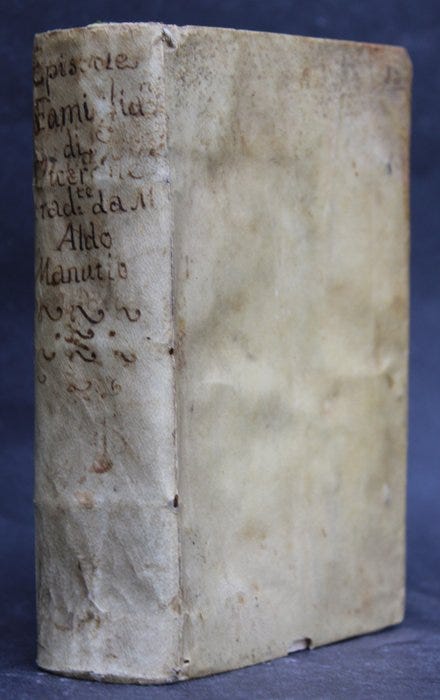 Epistole
Famiglia
di
Cicerone
Trad.te da M
Aldo
Manutio